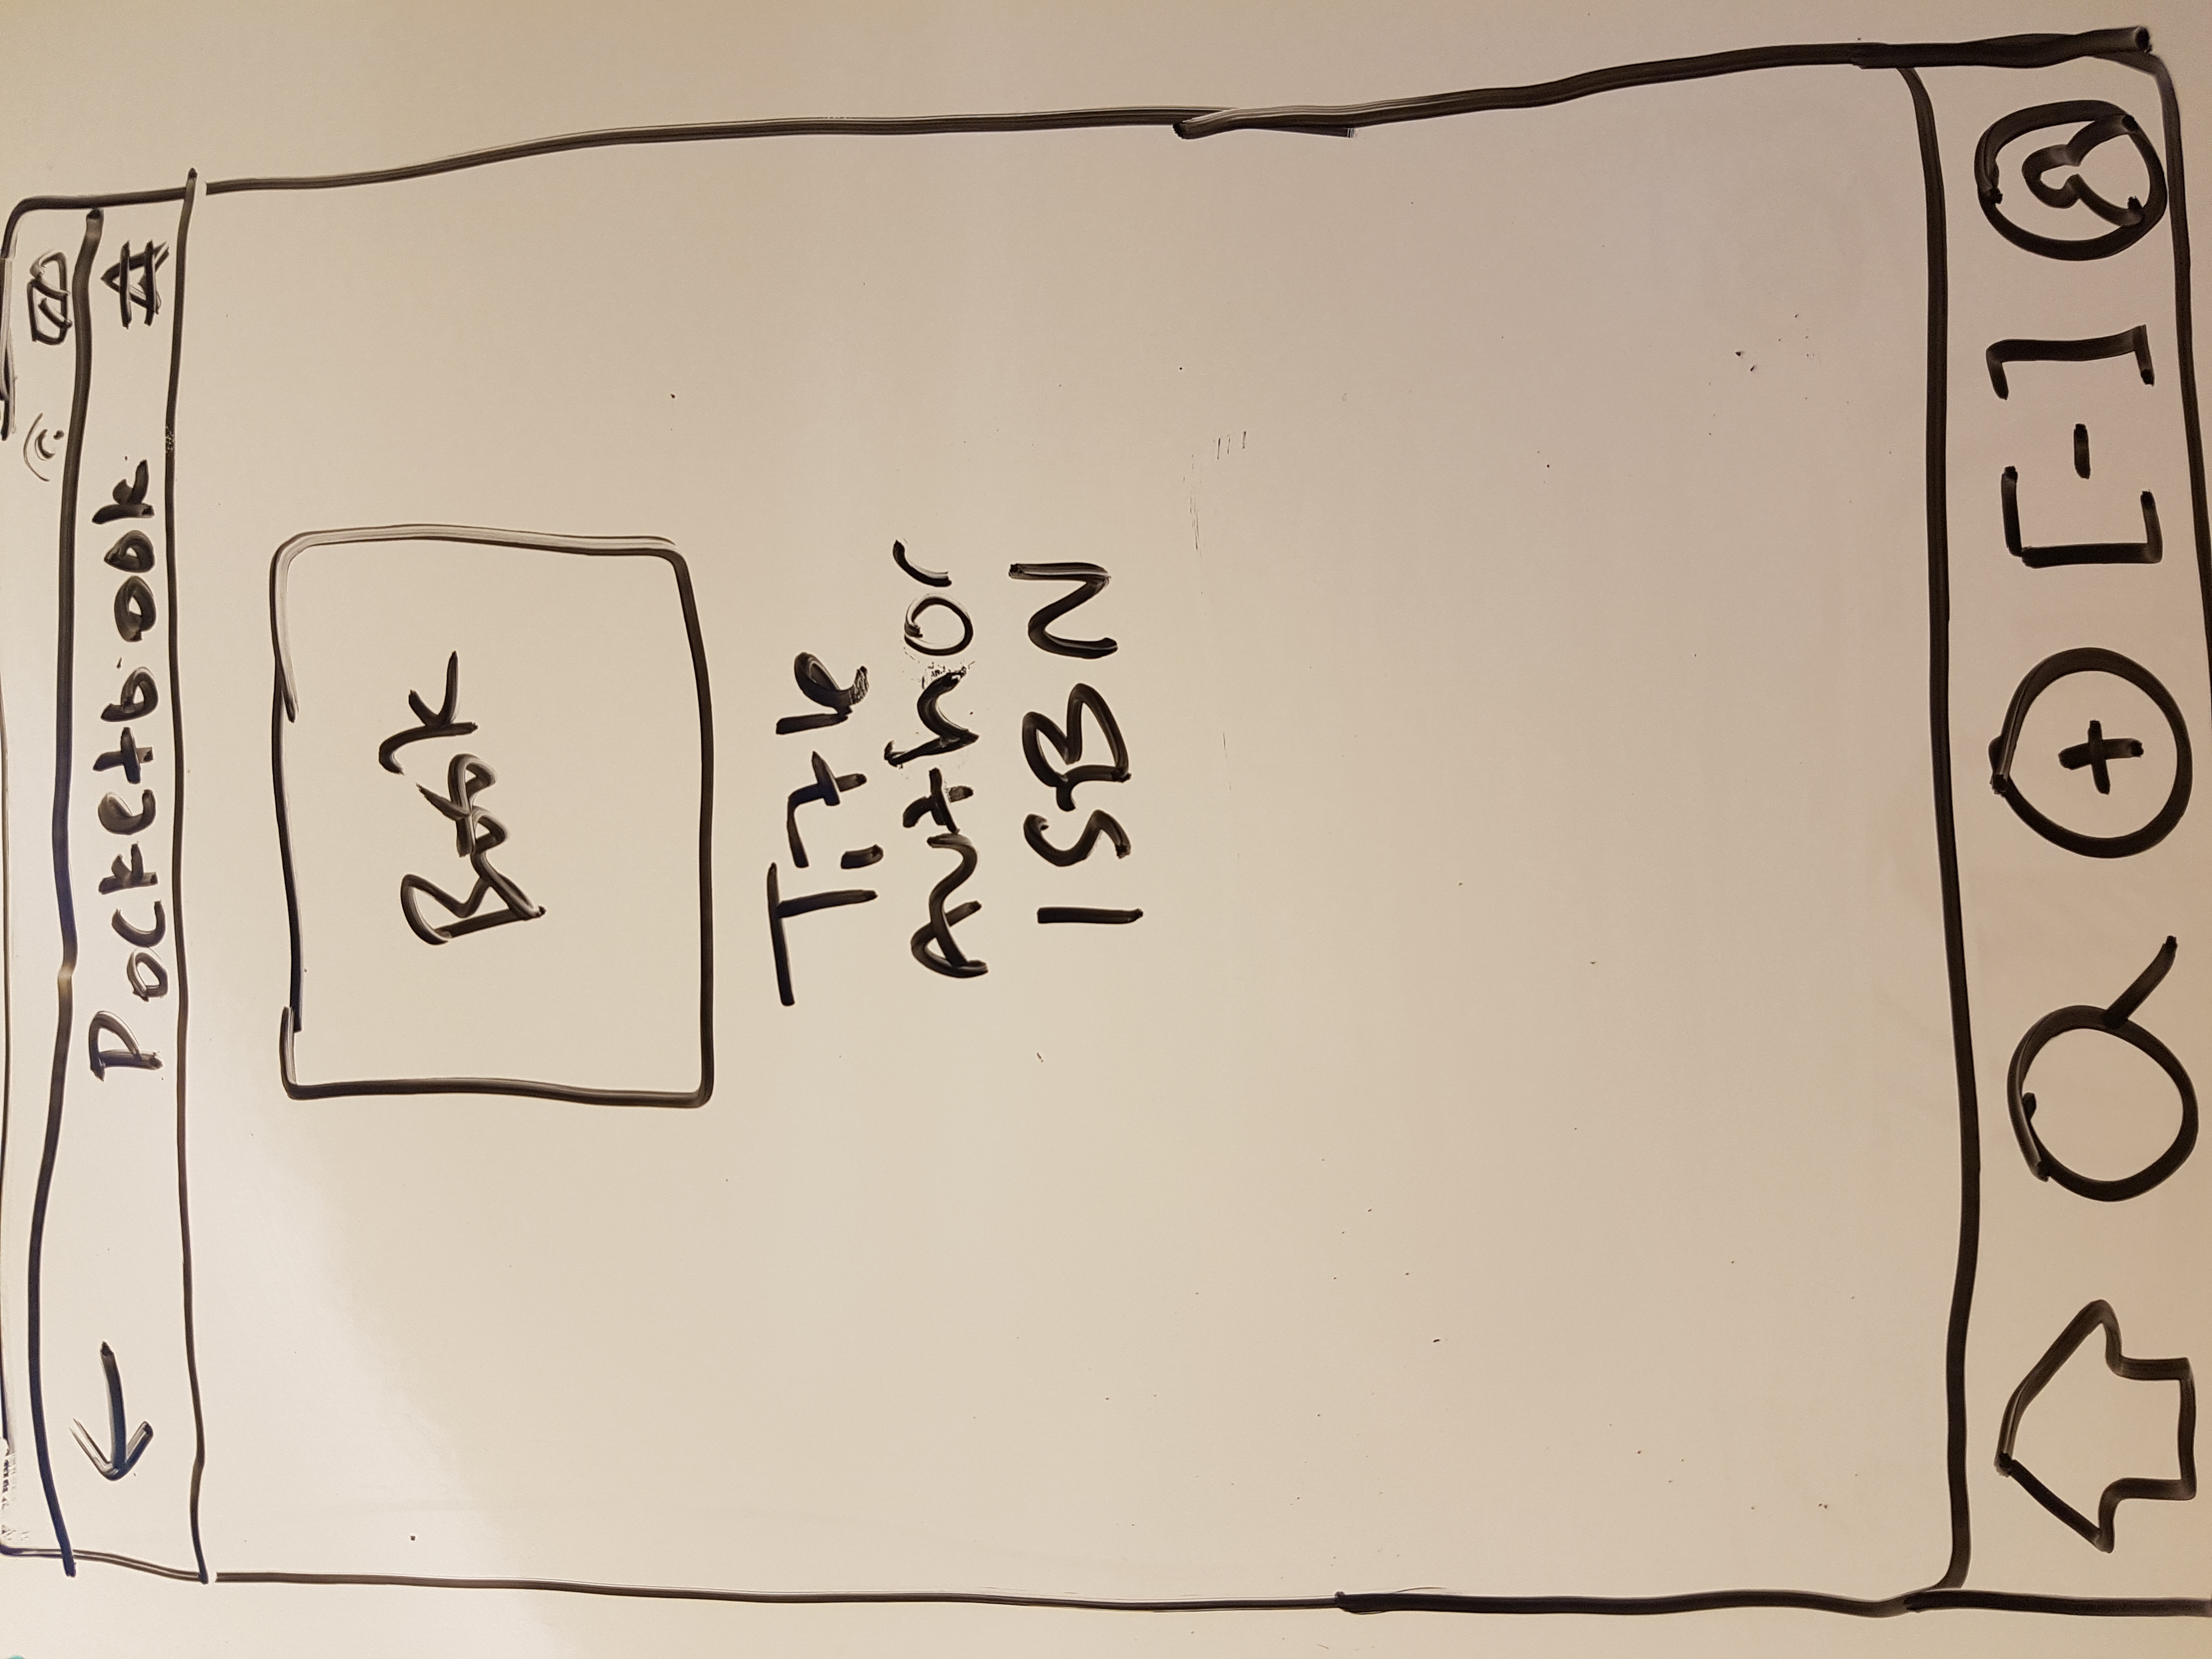 Pocketbook
Book
Title
Author
ISBN